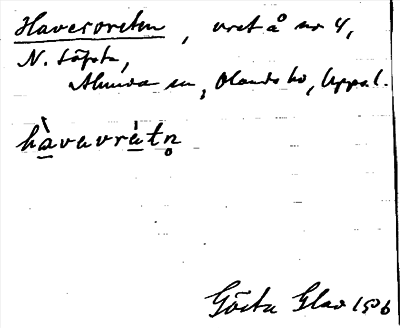 Havesvreten, vret å no 4,
N. Löfsta,
Alunda sn, Olands hd, Uppsl.
hàvavràtn̥
Gösta Glas 1906